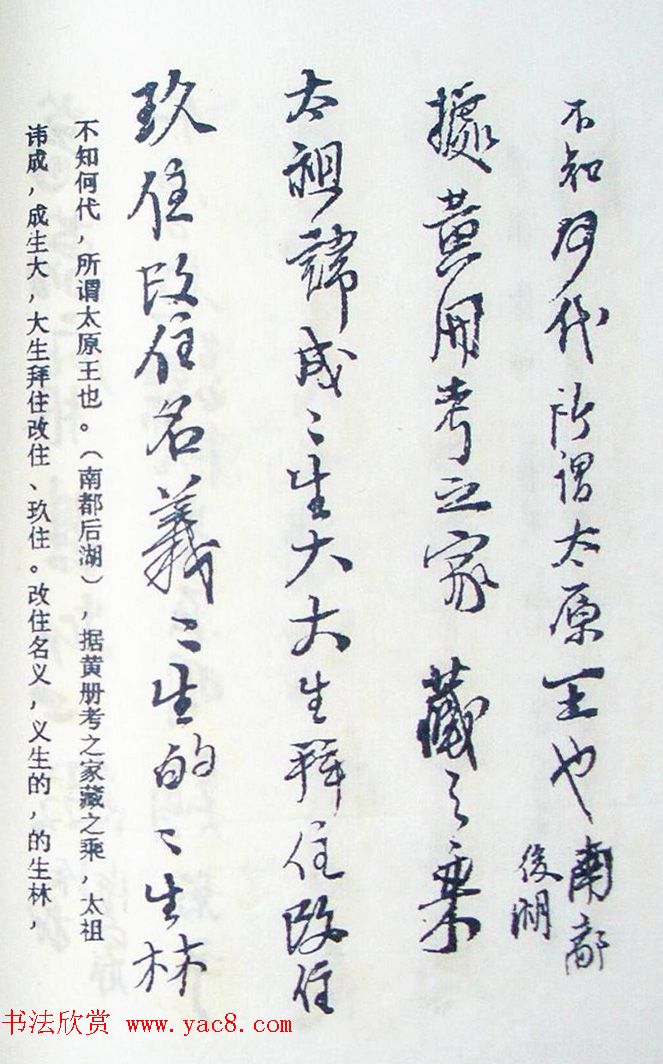 不知何代所谓太原王也南都
後湖
據黄册考之家藏之乘
太祖諱成〻生大大生拜住改住
玖住改住名義〻生的〻生林
不知何代，所谓太原王也。（南都后湖），据黄册考之家藏之乘，太祖
讳成，成生大，大生拜住改住、玖住。改住名义，义生的，的生林，
书法欣赏 www.yac8.com